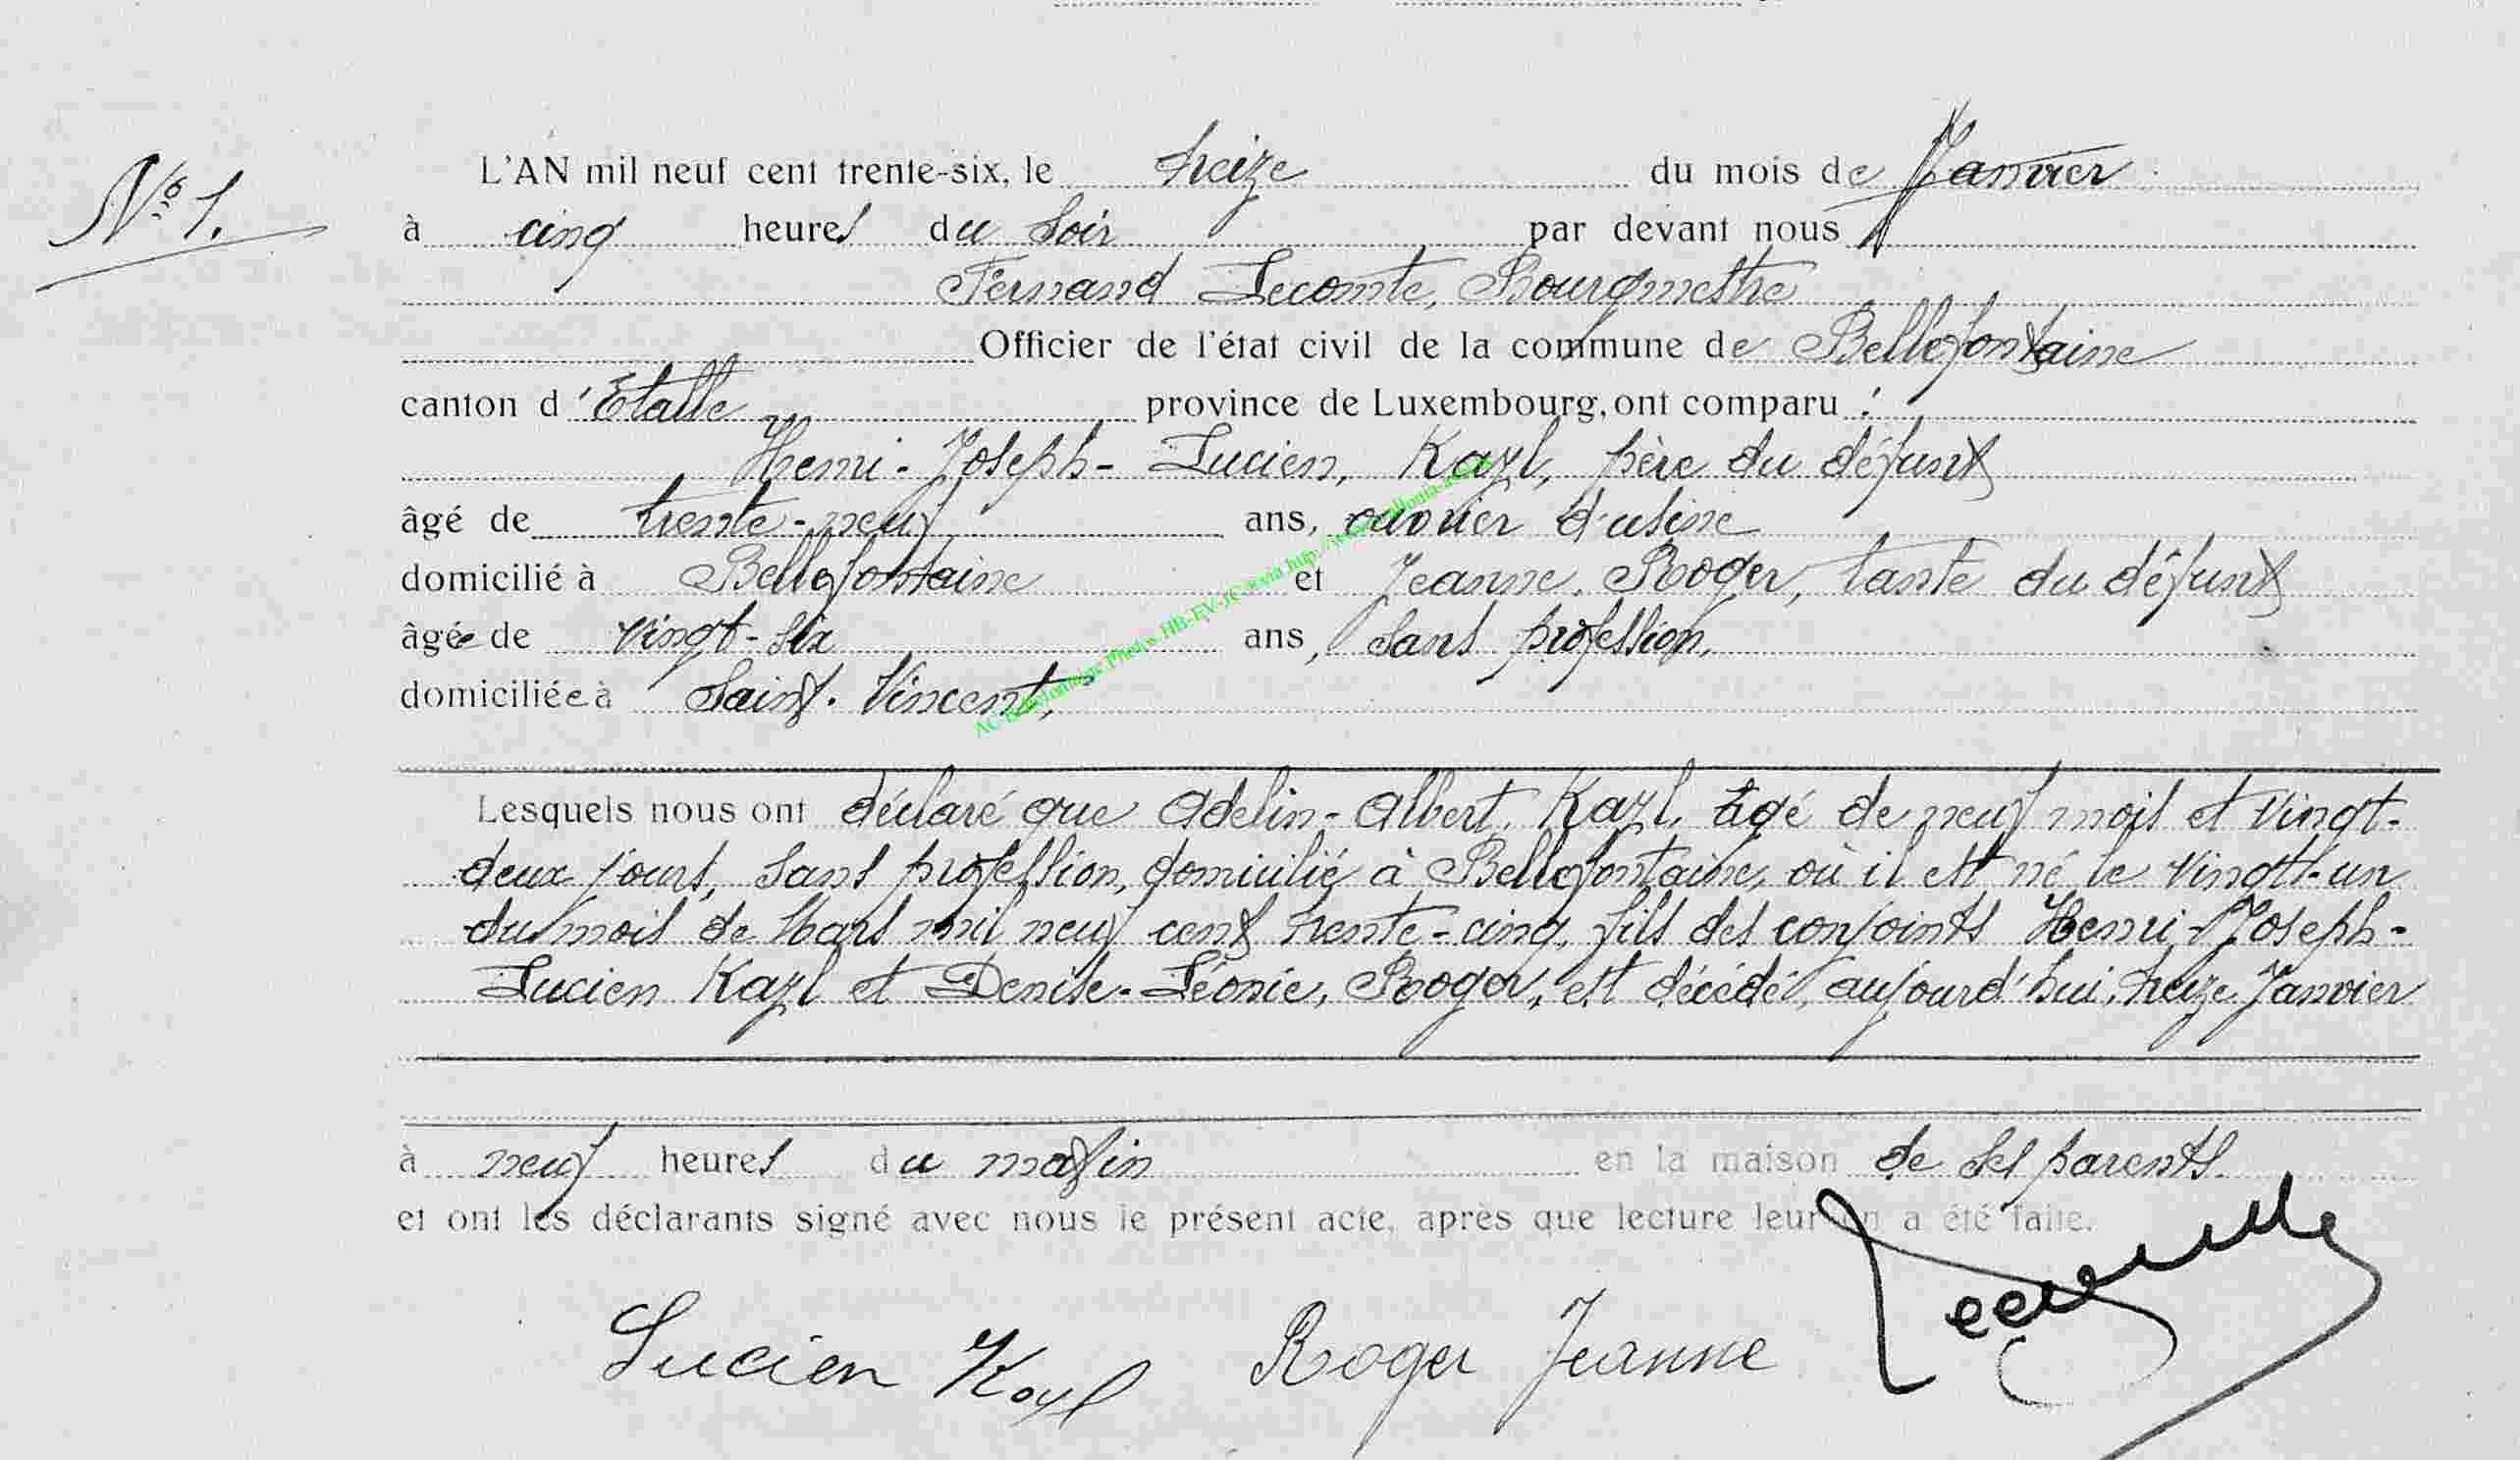 N° 1.
L'AN mil neuf cent trente-six, le treize du mois de Janvier
à cinq heures du soir par devant nous
Fernand Lecomte, Bourgmestre
Officier de l'état civil de la commune de Bellefontaine
canton d'Etalle province de Luxembourg, ont comparu :
Henri-Joseph-Lucien, Kazl, père du défunt
âgé de trente-neuf ans, ouvrier d'usine
domicilié à Bellefontaine et Jeanne Roger, tante du défunt
âgée de vingt-six ans, sans profession,
domiciliée à Saint-Vincent,
Lesquels nous ont déclaré que Adelin-Albert, Kazl, âgé de neuf mois et vingt-
deux jours, sans profession, domicilié à Bellefontaine, où il est né le vingt-un
du mois de Mars mil neuf cent trente-cinq, fils des conjoints Henri-Joseph-
Lucien Kazl et Denise-Léonie, Roger, est décédé, aujourd'hui, treize Janvier
à neuf heures du matin en la maison de ses parents.
et ont les déclarants signé avec nous le présent acte, après que lecture leur en a été faite.
Lucien Kazl Roger Jeanne